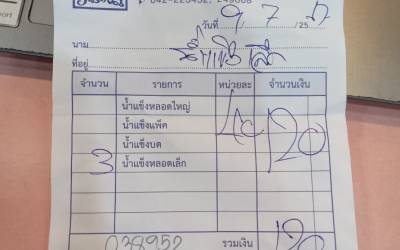 042-223452, 249088
วันที่ 9 / 7 / 25
นาม
ที่อยู่
จำนวน รายการ หน่วยละ จำนวนเงิน
น้ำแข็งหลอดใหญ่
น้ำแข็งแพ็ค 40 120
น้ำแข็งบด
3 น้ำแข็งหลอดเล็ก
038952 รวมเงิน 120